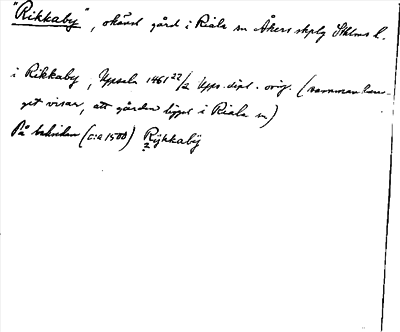 "Rikkaby", okänd gård i Riala sn Åkers skplg Sthlms l.
i Rikkaby, Uppsala 1461 22/2 Upps. dipl. orig. (samman han-
get visar, att gården ligget i Riala sn)
På baksidan (c:a 1500) Rykkabÿ